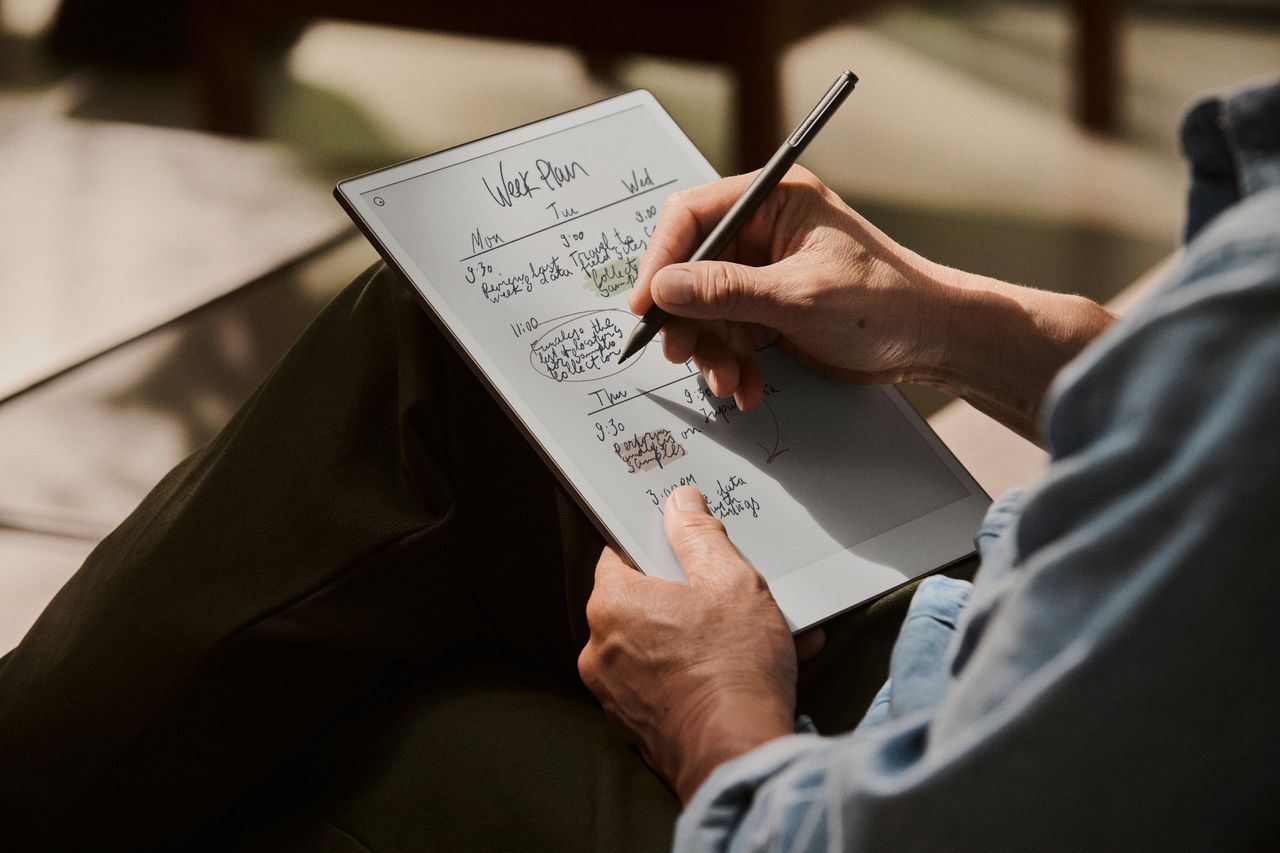 Week Plan
Mon Tue Wed
9:30 9:00 9:00
Review last
week's data
Travel to
field sites
Collect
Samples
11:00
Finalyse the
list of locations
for sample
collection
Thu
9:30 9:30
Perform
analysis
Samples
on
3:00 PM
data
with